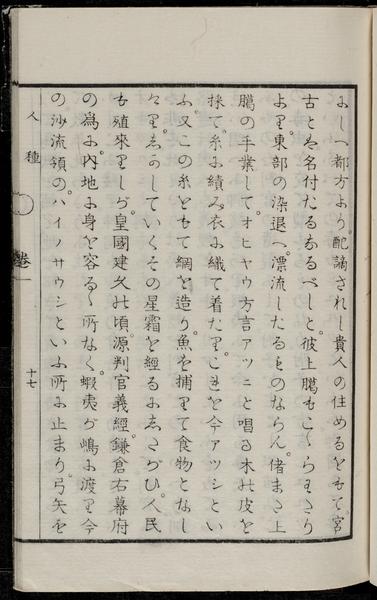 にしへ都方より配謫されし貴人の住めるをもて宮
古とは名付たるなるべしと彼上臈もこゝらわたり
より東部の染退へ漂流したるものならん偖まさ上
臈の手業してオヒヤウ方言アツニと唱る木の皮を
採て糸に績み衣に織て着たりこれを今アツシとい
ふ又この糸をもて網を造り魚を捕りて食物となし
々りゑかしていくその星霜を經るにゑたがひ人民
も殖來りしが皇國建久の頃源判官義經鎌倉右幕府
の為に内地に身を容るゝ所なく蝦夷が嶋に渡り今
の沙流領のハイノサウシといふ所に止まり弓矢を
人種
卷一
十七